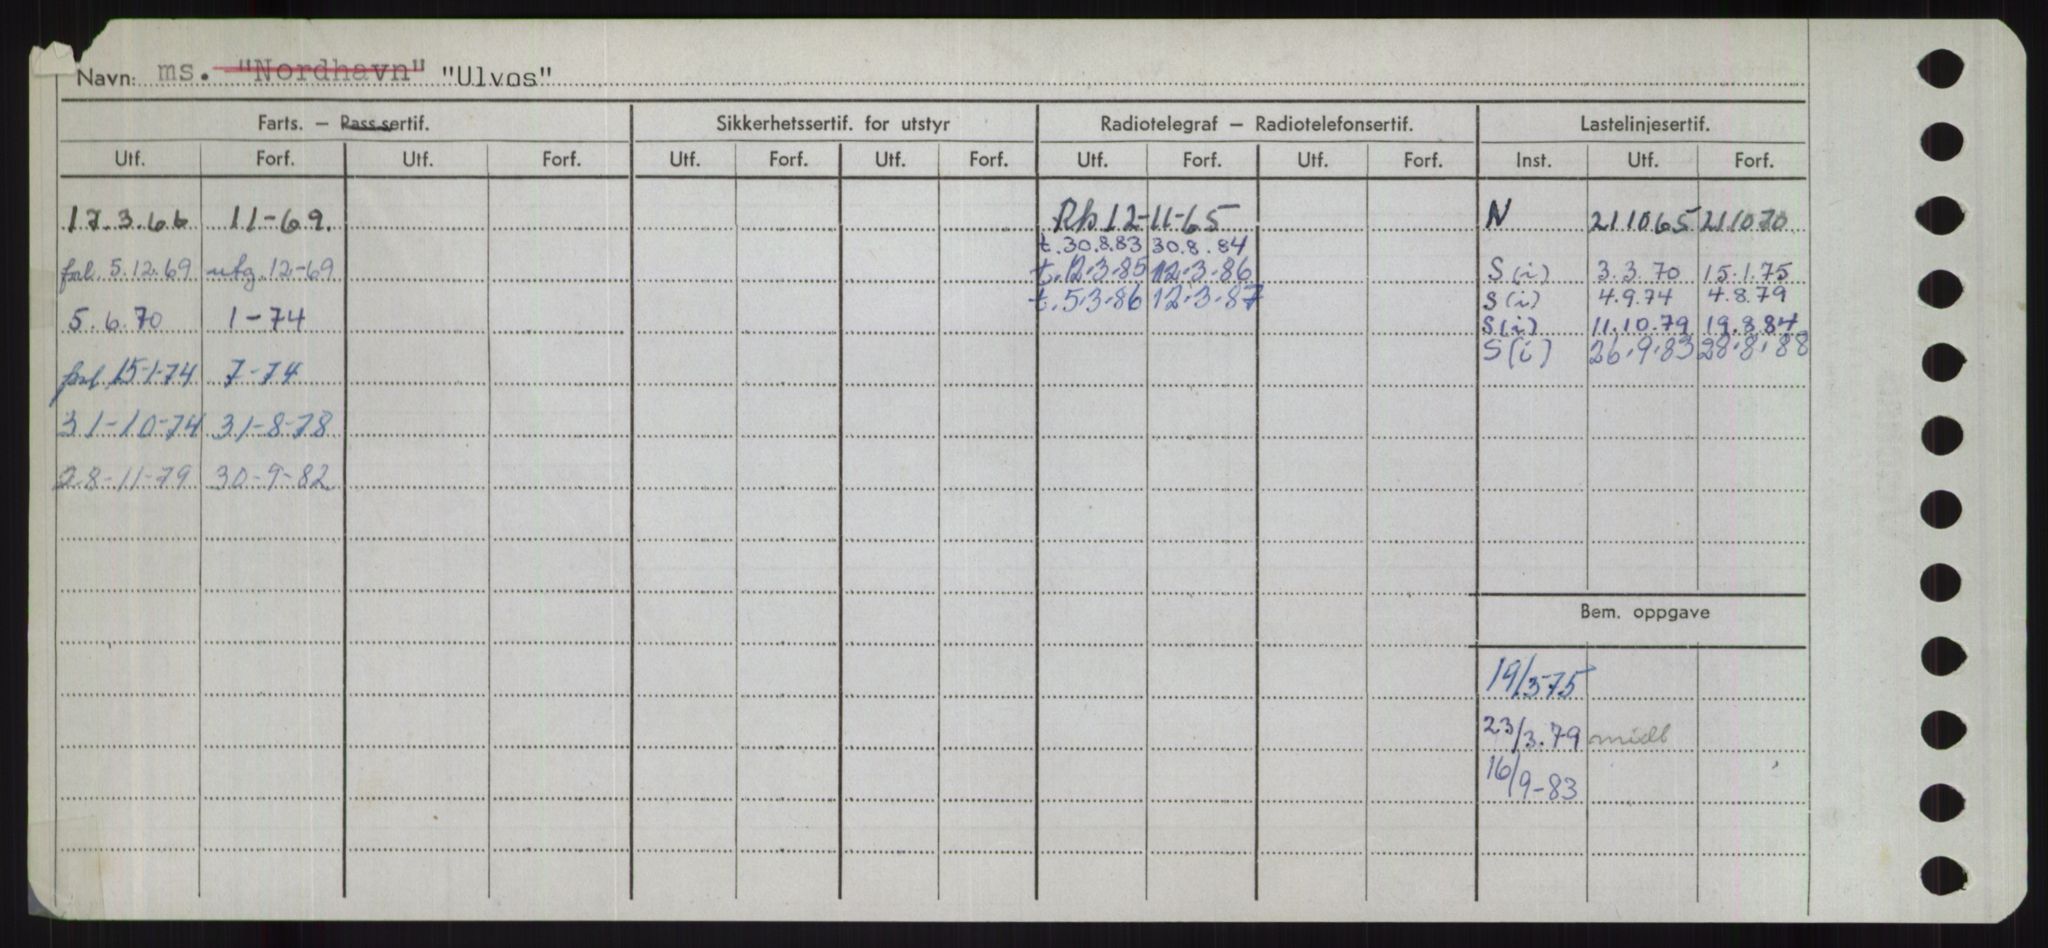 Navn: ms. "Nordhavn" "Ulvos"
Farts. — Pass.sertif. Sikkerhetssertif. for utstyr Radiotelegraf — Radiotelefonsertif. Lastelinjesertif.
Utf. Forf. Utf. Forf. Utf. Forf. Utf. Forf. Utf. Forf. Utf. Forf. Inst. Utf. Forf.
17.3.66 11-69. Rb 12-11-65 N 21 10 65 21 10 70
t. 30.8.83 30.8.84
fal. 5.12.69 utg. 12-69 t. 12-3-85 12-3-86 S (i) 3.3.70 15.1.75
t. 5-3-86 12-3-87 S (i) 4.9.74 4.8.79
5.6.70 1-74 S (i) 11.10.79 19.8.84
S (i) 26.9.83 28.8.88
15-1-74 7-74
31-10-74 31-8-78
28-11-79 30-9-82
Bem. oppgave
19/3-75
23/3.79 midl
16/9-83